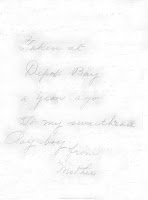 Taken at
Depoe Bay
a year ago
To my sweetheart
Boy
from
Mother